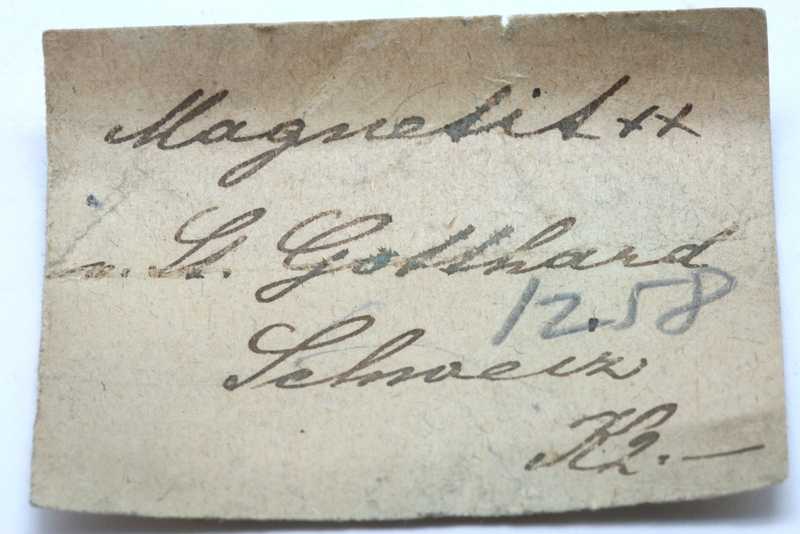 Magnetit xx
v. St. Gotthard
12.58
Schweiz
K2.—